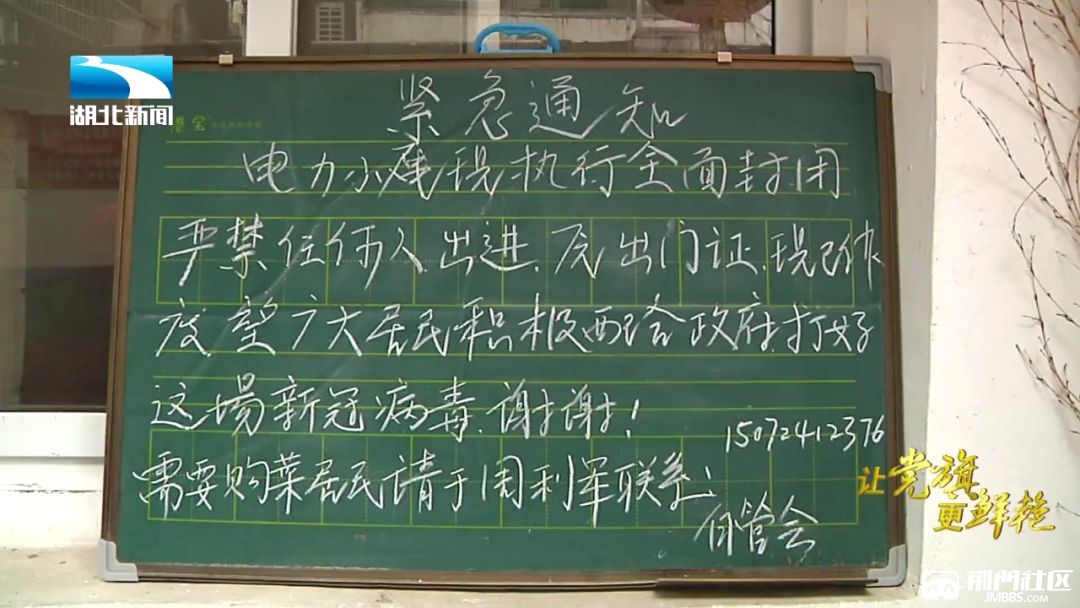 湖北新闻
紧急通知
电力小区现执行全面封闭
严禁任何人出进,原出门证,现已作
废,望广大居民积极配合政府,打好
这场新冠病毒,谢谢!
15072412376
需要购菜居民请于周利军联系:
自管会
让党旗
更鲜艳
荆门社区
JMBBS.COM